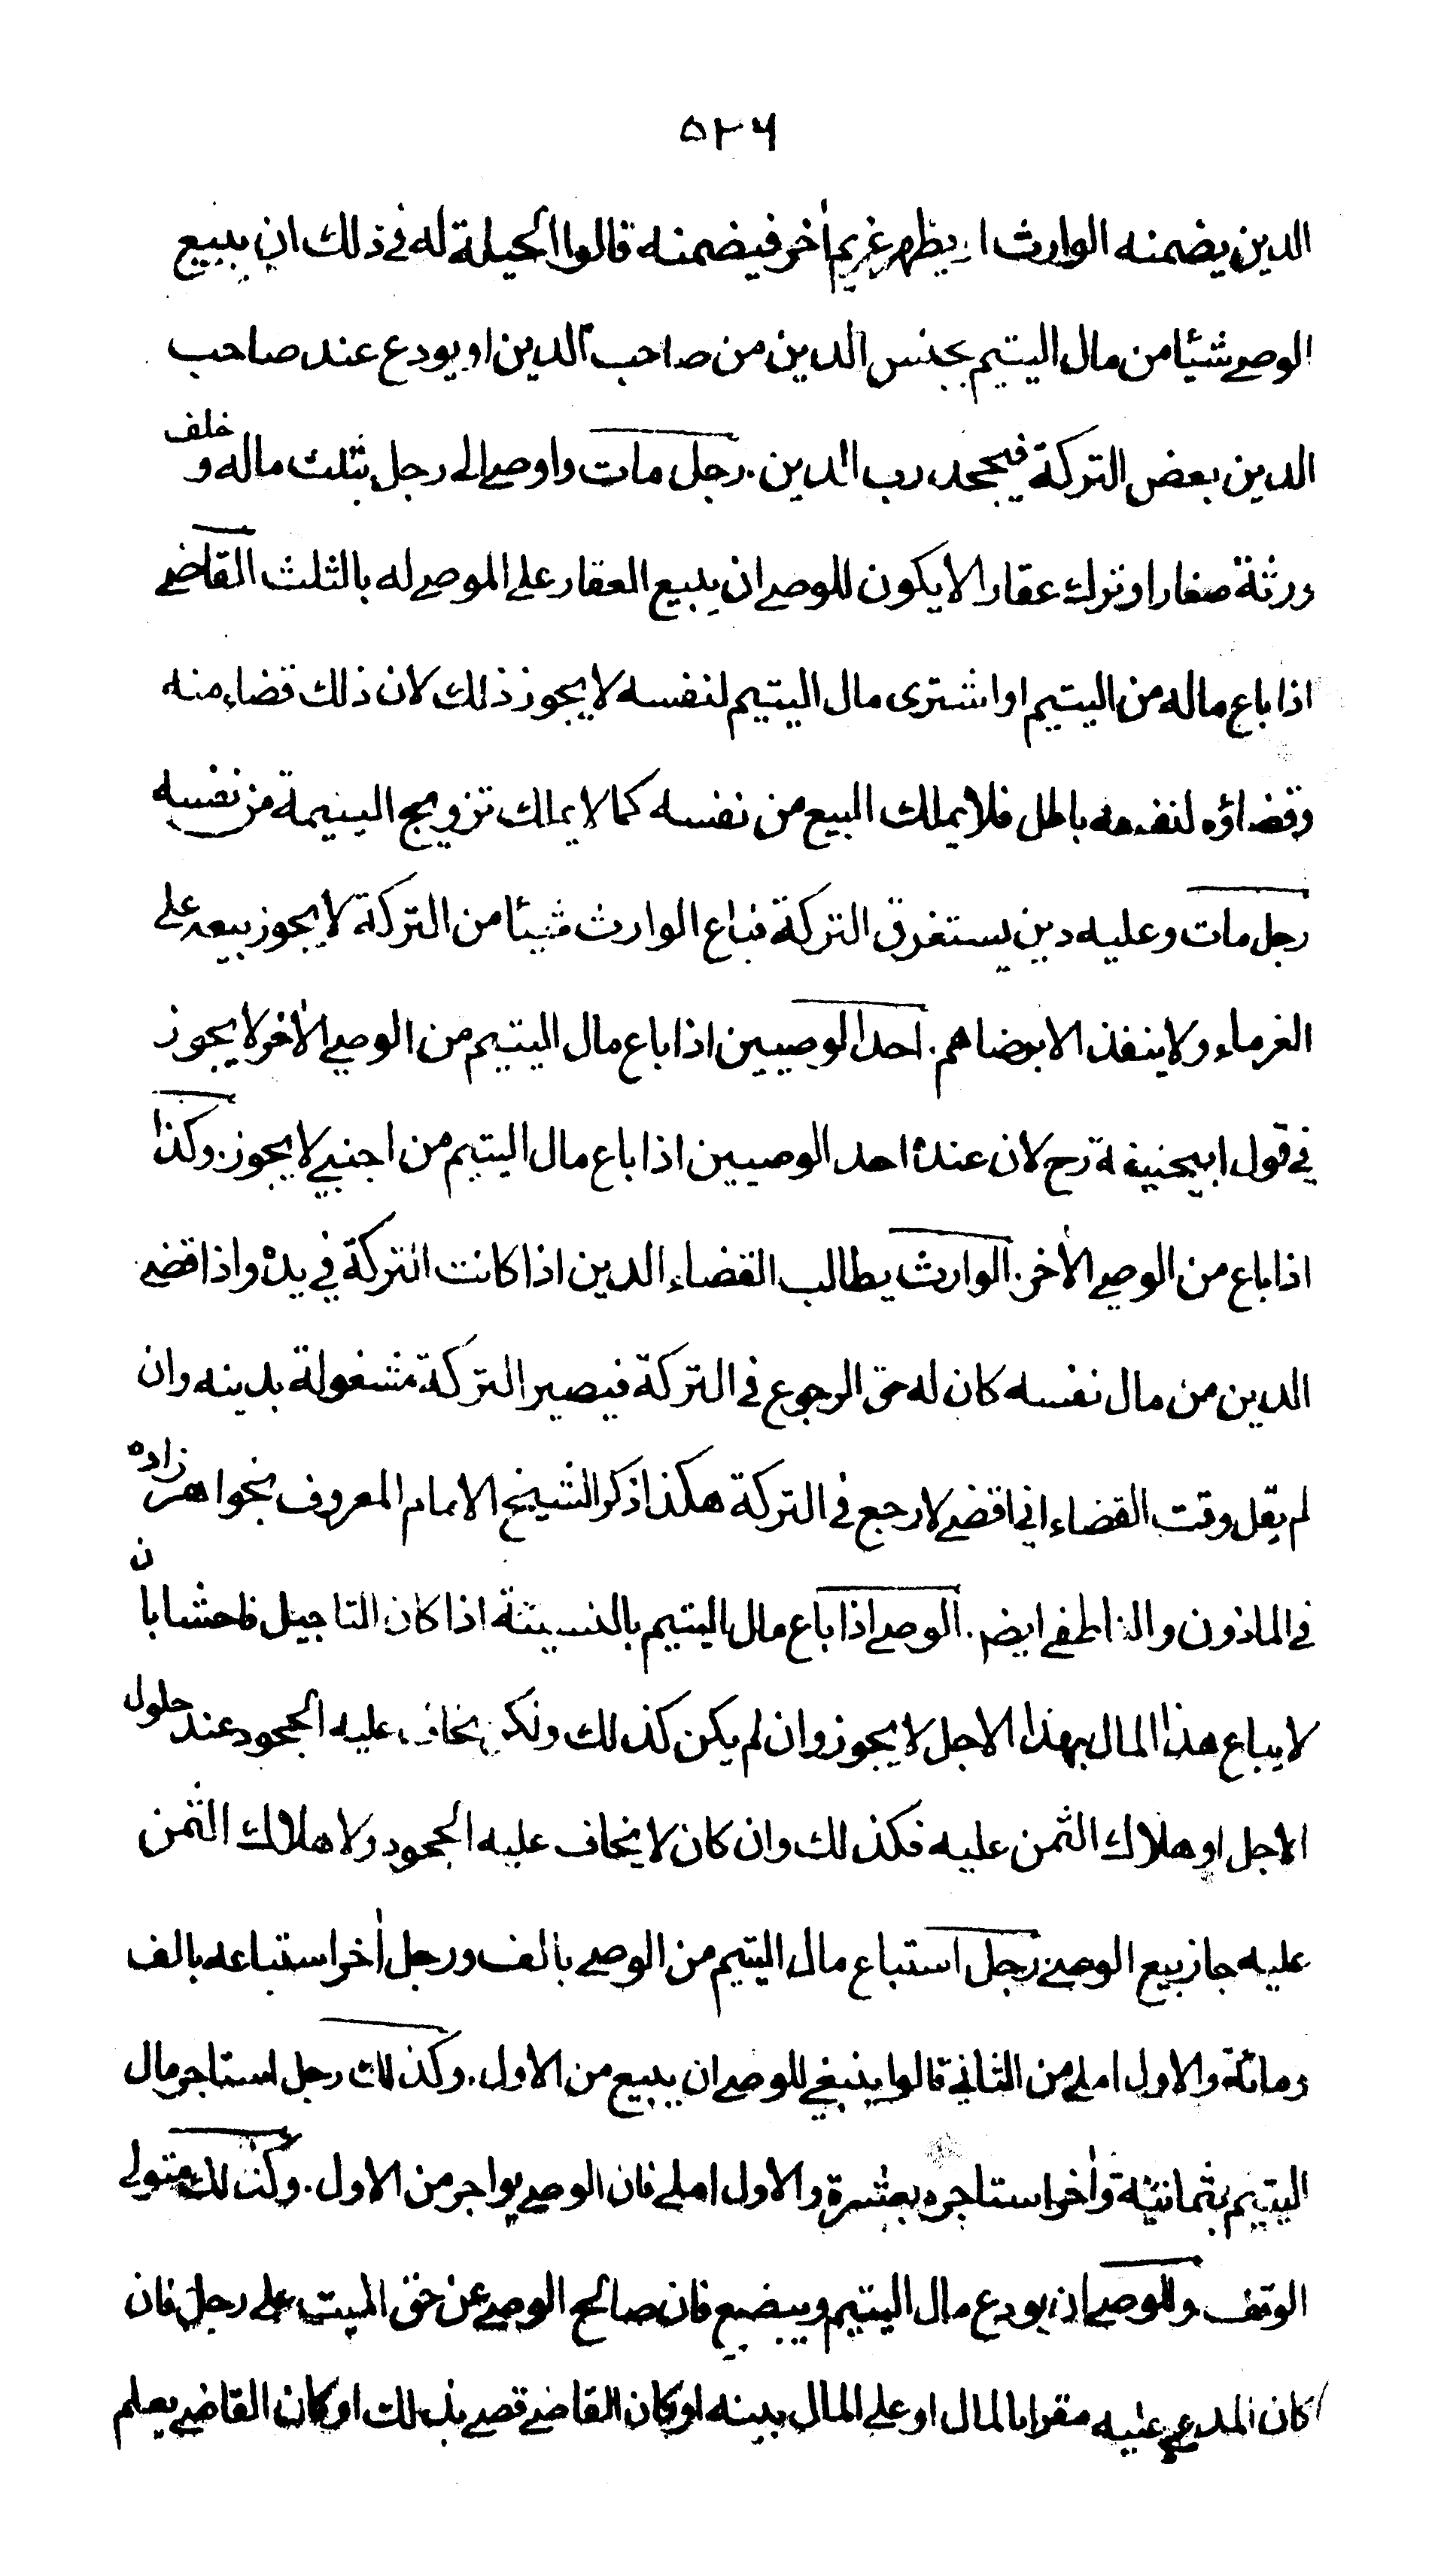 ٥٢٦
الدين يضمنه الوارث او يظهر غريم أخر فيضمنه قالوا الحيلة له فى ذلك ان يبيع
الوصے شيئا من مال اليتيم بجنس الدين من صاحب الدين او يودع عند صاحب
الدين بعض التركة فيجحد رب الدين. رجل مات واوصے الے رجل بثلث ماله و خلف
ورثة صغارا وترك عقارا لا يكون للوصے ان يبيع العقار علے الموصے له بالثلث القاضے
اذا باع ماله من اليتيم او اشترى مال اليتيم لنفسه لا يجوز ذلك لان ذلك قضاء منه
وقضاؤه لنفسه باطل فلا يملك البيع من نفسه كما لا يملك تزويج اليتيمة من نفسه
رجل مات وعليه دين يستغرق التركة فباع الوارث شيئا من التركة لا يجوز بيعه علے
الغرماء ولا ينفذ الا برضاهم. احد الوصيين اذا باع مال اليتيم من الوصے الأخر لا يجوز
فے قول ابيحنيفة رح لان عنده احد الوصيين اذا باع مال اليتيم من اجنبے لا يجوز. وكذا
اذا باع من الوصے الأخر. الوارث يطالب القضاء الدين اذا كانت التركة فے يده واذا قضے
الدين من مال نفسه كان له حق الرجوع فى التركة فيصير التركة مشغولة بدينه وان
لم يقل وقت القضاء انى اقضے لارجع فى التركة هكذا ذكر الشيخ الامام المعروف بخواهر زاده
فے الماذون والناطفے ايضم. الوصے اذا باع مال اليتيم بالنسيئة اذا كان التاجيل فاحشا بان
لا يباع هذا المال بهذا الاجل لا يجوز وان لم يكن كذلك ولكن يخاف عليه الجحود عند حلول
الاجل او هلاك الثمن عليه فكذلك وان كان لا يخاف عليه الجحود ولا هلاك الثمن
عليه جاز بيع الوصے رجل استباع مال اليتيم من الوصے بالف ورجل أخر استباعه بالف
ومائة والاول املے من الثانى قالوا ينبغے للوصے ان يبيع من الاول. وكذلك رجل استاجر مال
اليتيم بثمانية وأخر استاجره بعشرة والاول املے فان الوصے يواجر من الاول. وكذلك متولے
الوقف وللوصے ان يودع مال اليتيم ويبضع فان صالح الوصے عن حق الميت علے رجل فان
كان المدعے عليه مقرا بالمال او علے المال بينه او كان القاضے قضے بذلك او كان القاضے يعلم